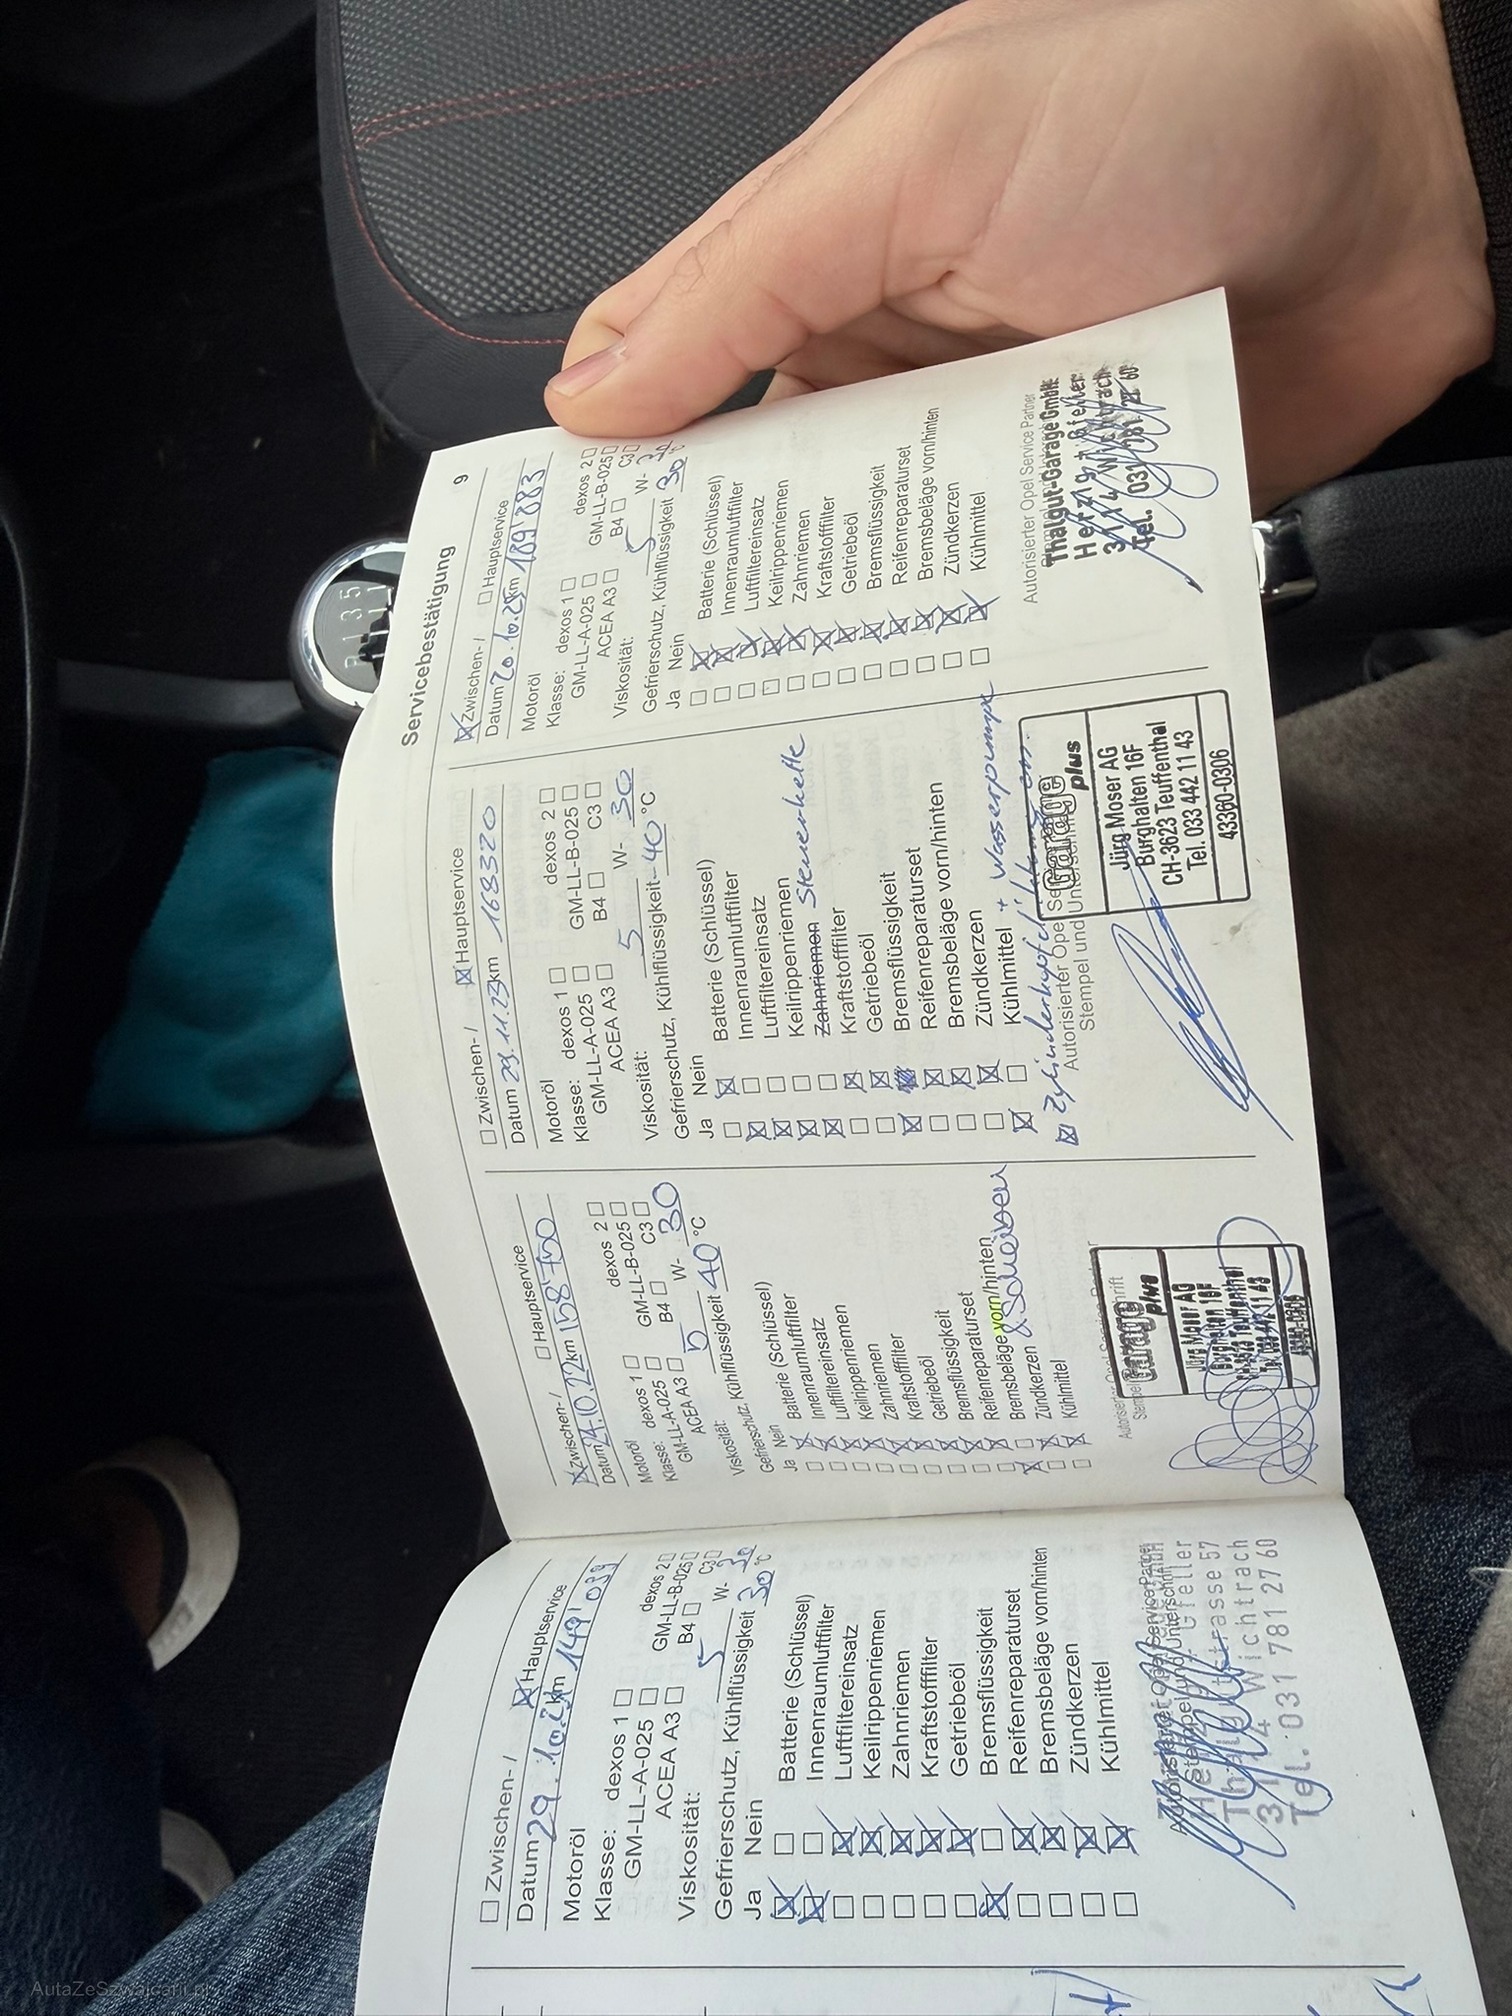 Servicebestätigung 9
☐ Zwischen- / ☒ Hauptservice
Datum 29.10.21 km 149'039
Motoröl
Klasse: dexos 1 ☐ dexos 2 ☐
GM-LL-A-025 ☐ GM-LL-B-025 ☐
ACEA A3 ☐ B4 ☐ C3 ☐
Viskosität: 5 W- 30
Gefrierschutz, Kühlflüssigkeit 30 °C
Ja Nein
☒ ☐ Batterie (Schlüssel)
☒ ☐ Innenraumluftfilter
☐ ☒ Luftfiltereinsatz
☐ ☒ Keilrippenriemen
☐ ☒ Zahnriemen
☐ ☒ Kraftstofffilter
☐ ☒ Getriebeöl
☒ ☐ Bremsflüssigkeit
☐ ☒ Reifenreparaturset
☐ ☒ Bremsbeläge vorn/hinten
☐ ☒ Zündkerzen
☐ ☒ Kühlmittel
Autorisierter Opel Service Partner
Gfeller
strasse 57
3114 Wichtrach
Tel. 031 781 27 60
☒ Zwischen- / ☐ Hauptservice
Datum 24.10.22 km 158'750
Motoröl
Klasse: dexos 1 ☐ dexos 2 ☐
GM-LL-A-025 ☐ GM-LL-B-025 ☐
ACEA A3 ☐ B4 ☐ C3 ☐
Viskosität: 5 W- 30
Gefrierschutz, Kühlflüssigkeit 40 °C
Ja Nein
☐ ☒ Batterie (Schlüssel)
☐ ☒ Innenraumluftfilter
☐ ☒ Luftfiltereinsatz
☐ ☒ Keilrippenriemen
☐ ☒ Zahnriemen
☐ ☒ Kraftstofffilter
☐ ☒ Getriebeöl
☐ ☒ Bremsflüssigkeit
☐ ☒ Reifenreparaturset
☒ ☐ Bremsbeläge vorn/hinten
☐ ☒ Zündkerzen & Scheiben
☐ ☒ Kühlmittel
Autorisierter Opel Service Partner
Garage
plus
Jürg Moser AG
Burghalten 16F
☐ Zwischen- / ☒ Hauptservice
Datum 29.11.23 km 168320
Motoröl
Klasse: dexos 1 ☐ dexos 2 ☐
GM-LL-A-025 ☐ GM-LL-B-025 ☐
ACEA A3 ☐ B4 ☐ C3 ☐
Viskosität: 5 W- 30
Gefrierschutz, Kühlflüssigkeit -40 °C
Ja Nein
☐ ☒ Batterie (Schlüssel)
☒ ☐ Innenraumluftfilter
☒ ☐ Luftfiltereinsatz
☒ ☐ Keilrippenriemen
☒ ☐ Zahnriemen Steuerkette
☐ ☒ Kraftstofffilter
☐ ☒ Getriebeöl
☒ Bremsflüssigkeit
☐ ☒ Reifenreparaturset
☐ ☒ Bremsbeläge vorn/hinten
☐ ☒ Zündkerzen
☒ ☐ Kühlmittel + Wasserpumpe
☒ Zylinderkopf
Autorisierter Opel Se
Stempel und Unterschrift
Garage
plus
Jürg Moser AG
Burghalten 16F
CH-3623 Teuffenthal
Tel. 033 442 11 43
43360-0306
☒ Zwischen- / ☐ Hauptservice
Datum 20.10.25 km 189'883
Motoröl
Klasse: dexos 1 ☐ dexos 2 ☐
GM-LL-A-025 ☐ GM-LL-B-025 ☐
ACEA A3 ☐ B4 ☐ C3 ☐
Viskosität: 5 W- 30
Gefrierschutz, Kühlflüssigkeit 30 °C
Ja Nein
☐ ☒ Batterie (Schlüssel)
☐ ☒ Innenraumluftfilter
☐ ☒ Luftfiltereinsatz
☐ ☒ Keilrippenriemen
☐ ☒ Zahnriemen
☐ ☒ Kraftstofffilter
☐ ☒ Getriebeöl
☐ ☒ Bremsflüssigkeit
☐ ☒ Reifenreparaturset
☐ ☒ Bremsbeläge vorn/hinten
☐ ☒ Zündkerzen
☐ ☒ Kühlmittel
Autorisierter Opel Service Partner
Thalgut-Garage GmbH
Herzig + Gfeller
3114 Wichtrach
Tel. 031 781 27 60
R 1 3 5
AutaZeSzwajcarii.pl